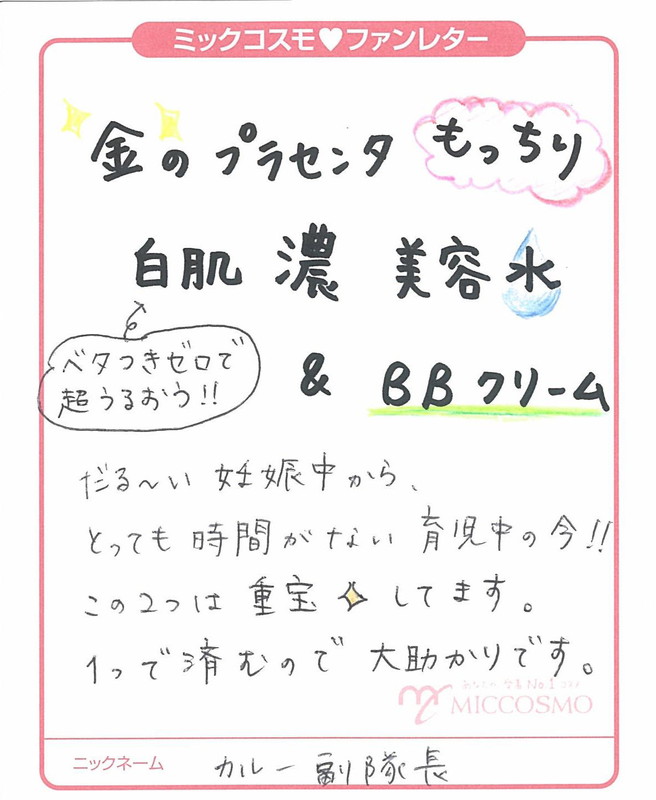 ミックコスモ♥ファンレター
金のプラセンタ もっちり
白肌 濃 美容水
ベタつきゼロで
超うるおう!!
& BBクリーム
だる〜い 妊娠中から、
とっても 時間がない 育児中の今!!
この2つは 重宝してます。
1つで済むので 大助かりです。
MICCOSMO
ニックネーム カレー副隊長